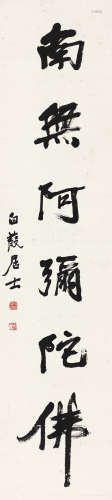 南無阿彌陀佛
白蕤居士